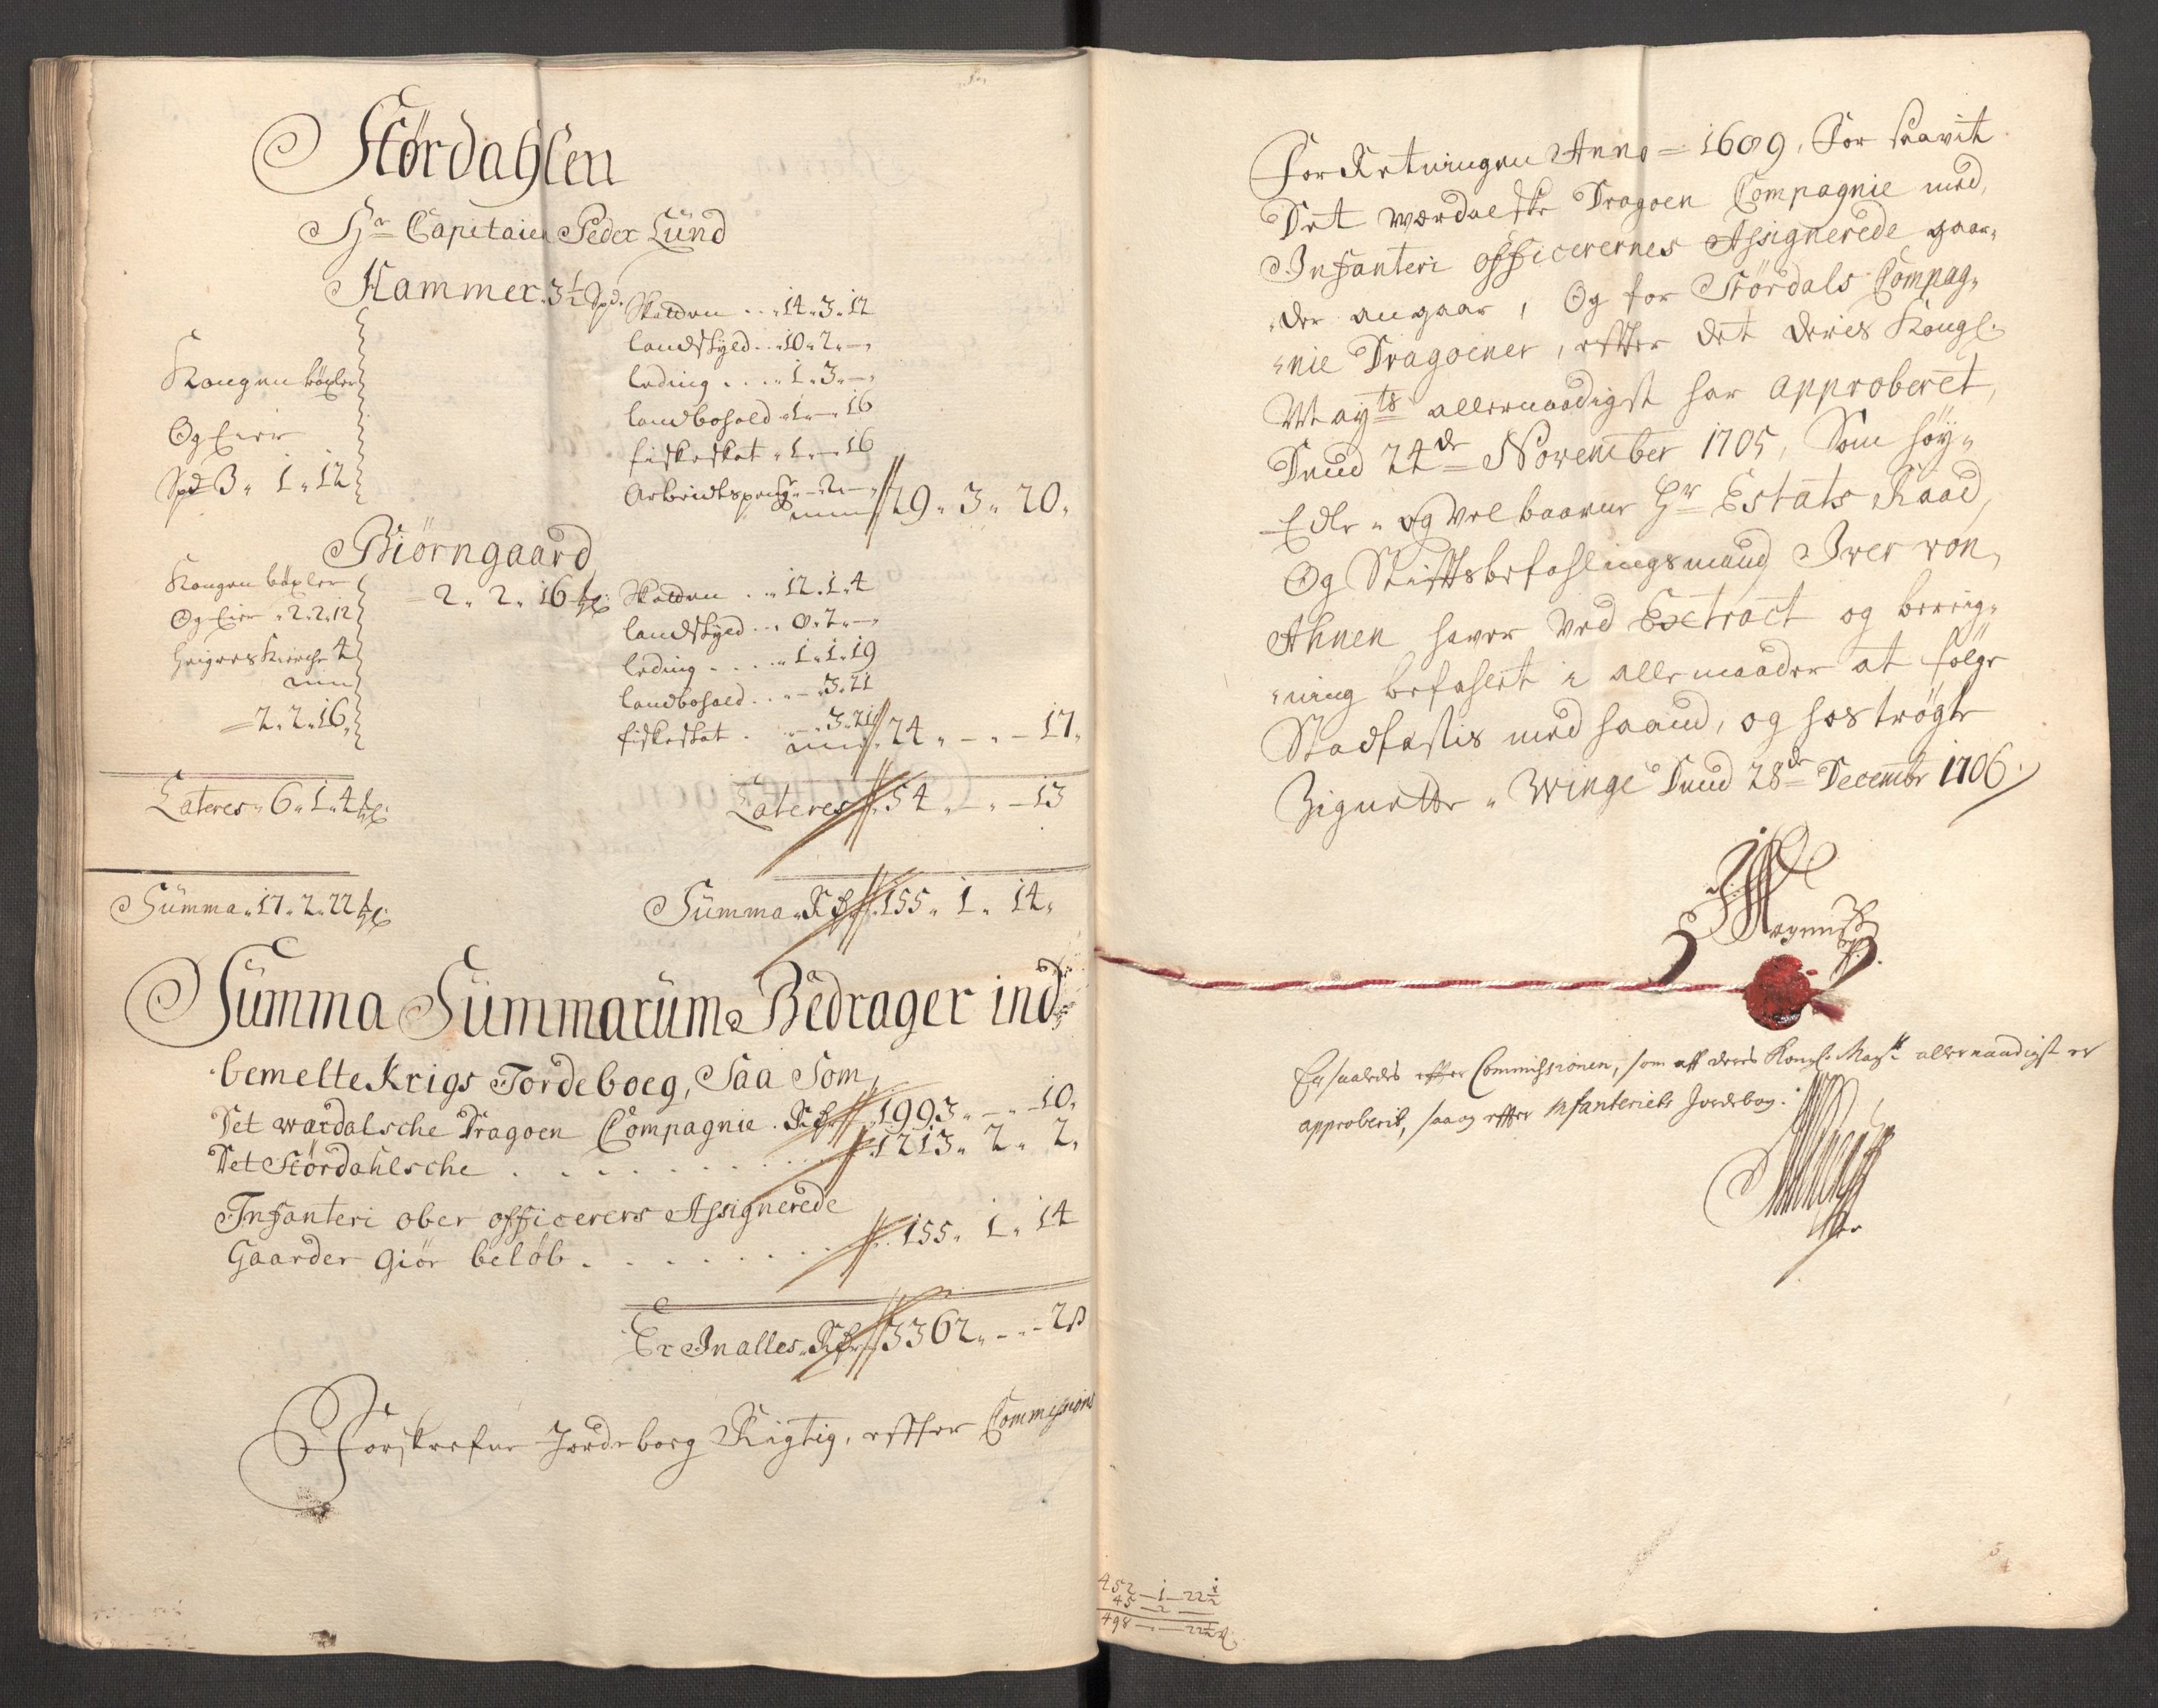 Størdahlen
Hr Capitaien Peder Lünd
Hammer. 3½ Spd.
Kongen böxler
Og Eier
Spd 3 " 1 " 12
Skatten . . " 14 " 3 " 12
landskyld . . " 10 " 2 " —
leding . . . . " 1 " 3 " —
landbohold " 1 " — 16
fiskeskat " 1 " — 16
Arbeidtspeng " — 2 " —
29 " 3 " 20 "
Biörngaard
2 " 2 " 16
Kongen böxler
Og Eier " 2 " 2 " 12
Kirche 4
2 " 2 " 16
Skatten . . " 12 " 1 " 4
landskyld . . . 8 " 2 " —
leding . . . . . " 1 " 1 " 19
landbohold . . " — " 3 " 21
fiskeskat . " — " 3 " 21
24 " — " — 17 "
Lateres " 6 " 1 " 4
Lateres 54 " — " — 13
Summa " 17 " 2 " 22
Summa " Rd 155 " 1 " 14 "
Summa Summarum Bedrager ind
bemelte Krigs Jordeboeg, Saa Som
Det wærdalsche Dragoen Compagnie . Rd 1993 " — " — 10 "
Det Størdahlsche . . . . . . . . 1213 " 2 " 2 "
Infanteri ober officerers Assignerede
Gaarder Giör beløb . . . . . . . 155 " 1 " 14
Er Inalles " Rd 3362 " — " — 2 ß
Forskrefne Jordeboeg Rigtig, effter Commissions
Forretningen Anno = 1689, For saavit
Det wærdalske Dragoen Compagnie med
Infanteri officerernes Assignerede gaar "
" der angaar, Og for Størdals Compag "
" nie Dragoener, effter det deris Kongl.
Mayts allernaadigst har approberet,
Dend 24de November 1705, Som höy "
Edle " og velbaarne Hr Estats Raad,
Og Stifftsbefahlingsmand Iver von
Ahnen haver ved Extract og bereig "
" ning befahlet i alle maader at følge
Stadfæstis med haand, og hoströgte
Zignette " Winge Dend 28de Decembr 1706.
Er saaledes effter Commissionen, som aff deres Kongl. Mayt allernaadigst er
approberit, saa og effter Infanteriets Jordebog.
452 — 1 — 22½
45 — 2 —
498 — — 22½